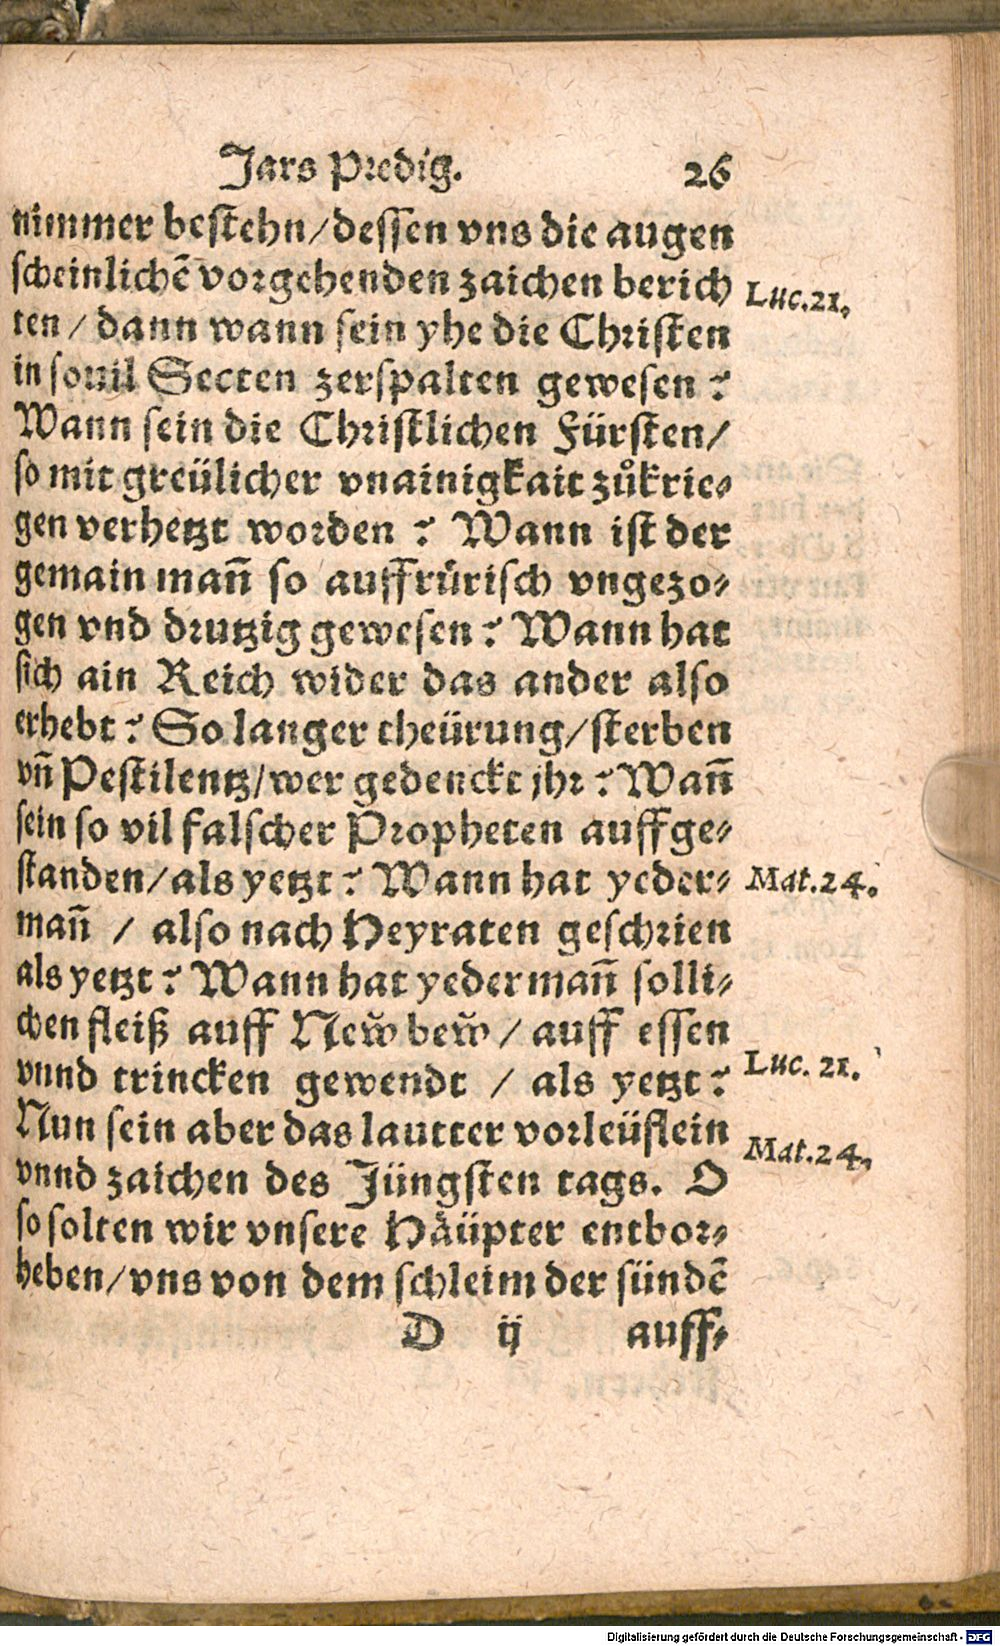 Jars Predig. 26
nimmer bestehn/dessen vns die augen
scheinlichẽ vorgehenden zaichen berich
ten / dann wann sein yhe die Christen
in souil Secten zerspalten gewesen ?
Wann sein die Christlichen Fürsten/
so mit greülicher vnainigkait zůkrie⸗
gen verhetzt worden ? Wann ist der
gemain mañ so auffrůrisch vngezo⸗
gen vnd drutzig gewesen? Wann hat
sich ain Reich wider das ander also
erhebt? So langer theürung/sterben
vñ Pestilentz/wer gedenckt jhr? Wañ
sein so vil falscher Propheten auffge⸗
standen/als yetzt? Wann hat yeder⸗
mañ / also nach Heyraten geschrien
als yetzt? Wann hat yederman̄ solli⸗
chen fleiß auff New̆ bew̆ / auff essen
vnnd trincken gewendt / als yetzt?
Nun sein aber das lautter vorleüflein
vnnd zaichen des Jüngsten tags. O
so solten wir vnsere Häüpter entbor⸗
heben/vns von dem schleim der sündẽ
D ij auff⸗
Luc.21.
Mat.24.
Luc. 21.
Mat.24,
Digitalisierung gefördert durch die Deutsche Forschungsgemeinschaft - DFG